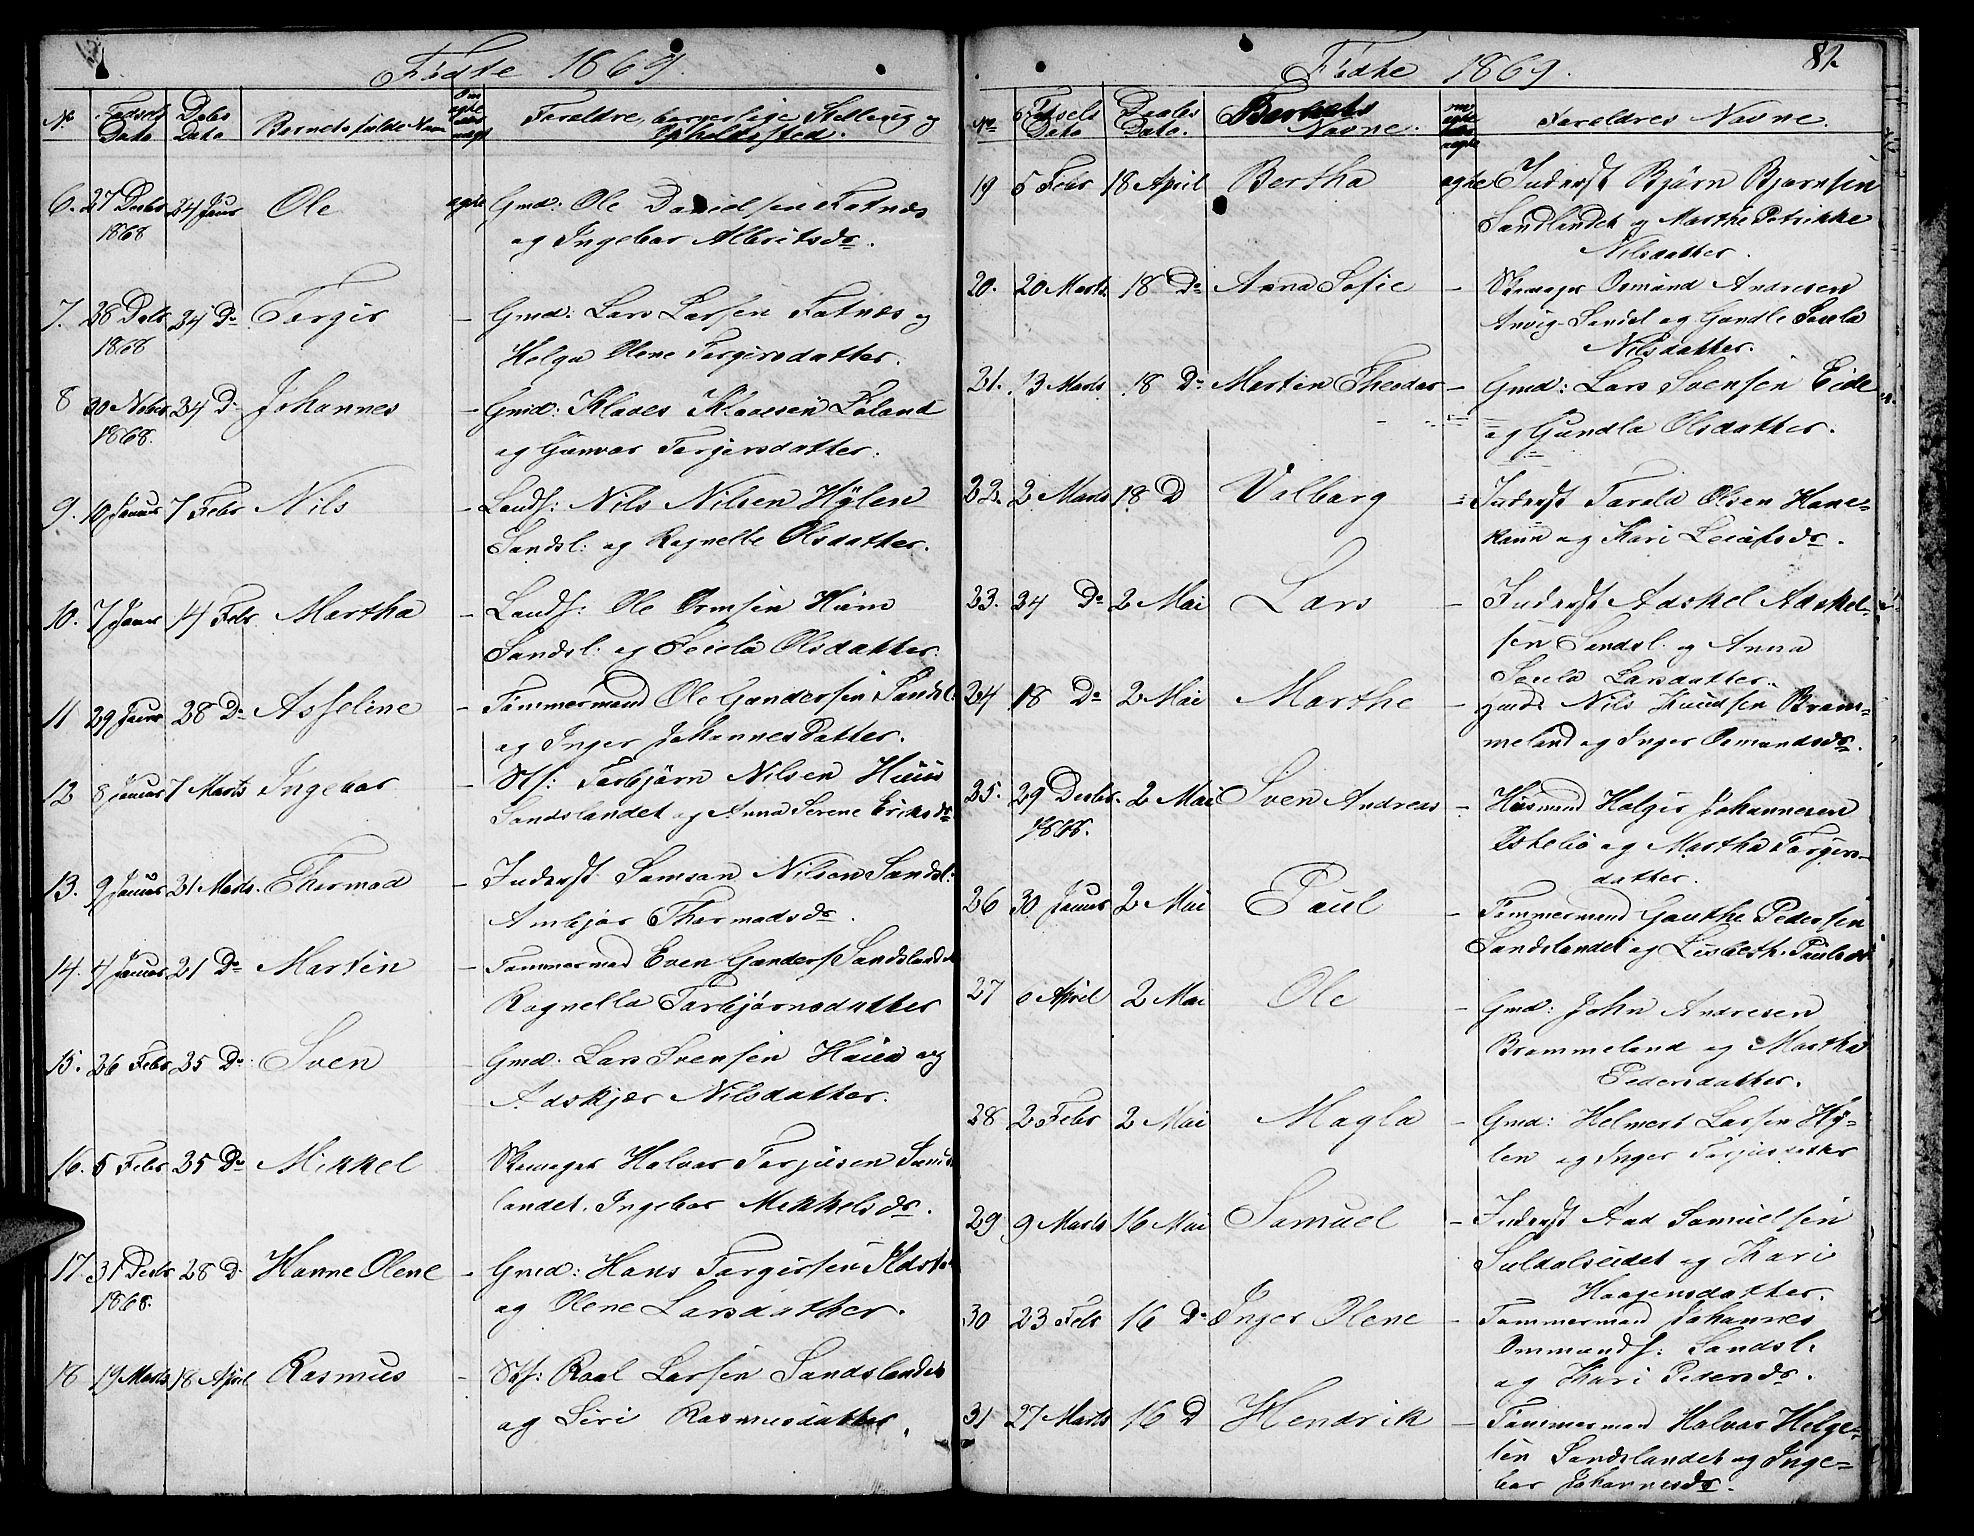 Fødte 1869.
No Fødsels Dato Daabs Dato Barnets fulde Navn Om ægte eller uægte Forældre, borgerlige Stilling og Opholdssted.
6. 27 Decbr 1868 24 Januar Ole ægte Gmd: Ole Danielsen Fatnæs
og Ingebor Albritsdr.
7. 28 Decbr 1868 24 Do Torgir – Gmd: Lars Larsen Fatnæs og
Helga Olene Torgirsdatter.
8 20 Novbr 1868. 24 D Johannes – Gmd: Klaves Klavesen Løland
og Gunvor Torgersdatter.
9. 10 Januar 7 Febr Nils – Landh: Nils Nilsen Hylen
Sandsl: og Ragnelle Olsdatter.
10. 7 Januar 14 Febr. Martha – Landh: Ole Ormsen
Sandsl: og Olsdatter.
11 29 Januar 28 Do Asseline – Tømmermand Ole Gundersen Sandsl:
og Inger Johannesdatter.
12 8 Januar 7 Marts Ingebor – Torbjørn Nilsen
Sandslandet og Anna Serene Eriksdr
13. 9 Januar 21 Marts. Thormod – Inderst Samson Nilsen Sandsl:
Ambjør Thormodsdr.
14. 4 Januar 21 Do Martin – Tømmermand Even Gunders. Sandslandet
Ragnella Torbjørnsdatter
15. 26 Febr 25 Do Sven – Gmd: Lars Svensen og
Adskjær Nilsdatter.
16. 5 Febr 25 Do Mikkel – Skomager Halvor Torjusen Sands
landet. Ingebor Mikkelsdr.
17. 31 Decbr 1868. 28 D Hanne Olene – Gmd: Hans Torgersen
og Olene Larsdatter.
18 19 Marts 18 April Rasmus – Roal Larsen Sandslandet
og Siri Rasmusdatter.
Fødte 1869. 82
No Fødsels Dato Daabs Dato. Barnets Navne. om ægte eller uægte Forældres Navne.
19 5 Febr 18 April Bertha ægte Inderst Bjørn Bjørnsen
Sandlandet og Marthe Petrikke
Nilsdatter.
20. 20 Marts 18 Do Anna Sofie – Skomager Osmund Andresen
Sandsl og Gundle Serela
Nilsdatter.
21. 13 Marts 18 Do Martin Theodor – Gmd: Lars Svensen Eide
og Gundla Olsdatter.
22. 2 Marts 18 D Valborg – Inderst Torald Olsen Hane-
kann og Kari Leiufsdr.
23. 24 Do 2 Mai Lars – Inderst Adskel Adskel-
sen Sandsl. og Anna
Serela Larsdatter.
24 18 Do 2 Mai Marthe – Gmd: Nils Knudsen Bram-
meland og Inger Osmundsdr.
25. 29 Decbr. 1868. 2 Mai Sven Andreas – Husmand Holgir Johannesen
og Martha Torgers-
datter.
26 30 Januar 2 Mai Paul – Tømmermand Gauthe Pedersen
Sandslandet og Lisbeth Paulsdr
27 April 2 Mai Ole – Gmd: John Andresen
Brommeland og Martha
Pedersdatter.
28 2 Febr 2 Mai Magla – Gmd: Helmert Larsen Hy-
len og Inger Torjusdatter
29 9 Marts 16 Mai Samuel – Inderst Aad Samuelsen
Suldalseidet og Kari
Haagensdatter.
30 23 Febr 16 Do Inger Olene – Tømmermand Johannes
Ommunds: Sandsl.
og Kari Pedersdr.
31 27 Marts 16 D Hendrik – Tømmermand Halvor Helge-
sen Sandslandet og Inge-
bor Johannesdr.